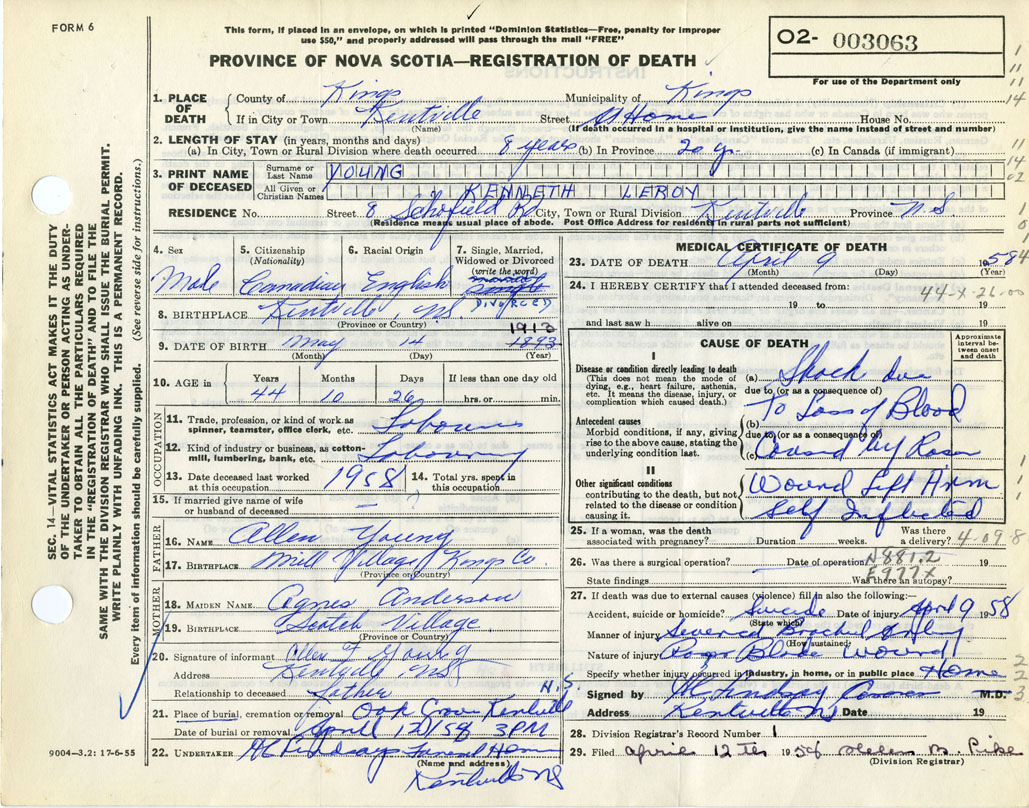 FORM 6
This form, if placed in an envelope, on which is printed "Dominion Statistics—Free, penalty for improper
use $50," and properly addressed will pass through the mail "FREE"
O2- 003063
For use of the Department only
PROVINCE OF NOVA SCOTIA—REGISTRATION OF DEATH
1. PLACE OF DEATH County of Kings Municipality of Kings
If in City or Town Kentville Street At Home House No.
(Name) (If death occurred in a hospital or institution, give the name instead of street and number)
2. LENGTH OF STAY (in years, months and days)
(a) In City, Town or Rural Division where death occurred 8 years (b) In Province 20 yr. (c) In Canada (if immigrant)
3. PRINT NAME OF DECEASED
Surname or Last Name YOUNG
All Given or Christian Names KENNETH LEROY
RESIDENCE No. Street 8 Schofield Rd City, Town or Rural Division Kentville Province N.S
(Residence means usual place of abode. Post Office Address for residents in rural parts not sufficient)
4. Sex 5. Citizenship (Nationality) 6. Racial Origin 7. Single, Married, Widowed or Divorced (write the word)
Male Canadian English married single DIVORCED
8. BIRTHPLACE Kentville, N.S
(Province or Country)
1913
9. DATE OF BIRTH May 14 1893
(Month) (Day) (Year)
10. AGE in Years Months Days If less than one day old
44 10 26 hrs. or min.
OCCUPATION
11. Trade, profession, or kind of work as spinner, teamster, office clerk, etc. Labourer
12. Kind of industry or business, as cotton-mill, lumbering, bank, etc. Labouring
13. Date deceased last worked at this occupation 1958 14. Total yrs. spent in this occupation
15. If married give name of wife or husband of deceased —
FATHER
16. NAME Allen Young
17. BIRTHPLACE Mill Village Kings Co.
(Province or Country)
MOTHER
18. MAIDEN NAME Agnes Anderson
19. BIRTHPLACE Scotch Village
(Province or Country)
20. Signature of informant Allen F Young
Address Kentville NS
Relationship to deceased father
N.S.
21. Place of burial, cremation or removal Oak Grove Kentville
Date of burial or removal April 12/58 3PM
22. UNDERTAKER H C Lindsays Funeral Home
(Name and address)
Kentville NS
9004—3.2: 17-6-55
MEDICAL CERTIFICATE OF DEATH
23. DATE OF DEATH April 9 1958
(Month) (Day) (Year)
24. I HEREBY CERTIFY that I attended deceased from:
44-x-26-00
19 to 19
and last saw h alive on 19
CAUSE OF DEATH
Approximate interval between onset and death
I
Disease or condition directly leading to death
(This does not mean the mode of dying, e.g., heart failure, asthenia, etc. It means the disease, injury, or complication which caused death.)
(a) Shock due
due to (or as a consequence of)
To Loss of Blood
Antecedent causes
Morbid conditions, if any, giving rise to the above cause, stating the underlying condition last.
(b)
due to (or as a consequence of)
(c) Caused by Razor
II
Other significant conditions
contributing to the death, but not related to the disease or condition causing it.
Wound Left Arm
Self Inflected
25. If a woman, was the death associated with pregnancy? Duration weeks. Was there a delivery? 4-09-8
N881.2
26. Was there a surgical operation? Date of operation 19
E977X
State findings Was there an autopsy?
27. If death was due to external causes (violence) fill in also the following:
Accident, suicide or homicide? Suicide Date of injury April 9 1958
(State which)
Manner of injury Severed Brachial Artery
(How sustained)
Nature of injury Razor Blade Wound
Specify whether injury occurred in industry, in home, or in public place Home
Signed by H C Lindsay Coroner M.D.
Address Kentville NS Date 19
28. Division Registrar's Record Number 1
29. Filed April 12 th 1958 Helen M. Pike
(Division Registrar)
SEC. 14—VITAL STATISTICS ACT MAKES IT THE DUTY
OF THE UNDERTAKER OR PERSON ACTING AS UNDER-
TAKER TO OBTAIN ALL THE PARTICULARS REQUIRED
IN THE "REGISTRATION OF DEATH" AND TO FILE THE
SAME WITH THE DIVISION REGISTRAR WHO SHALL ISSUE THE BURIAL PERMIT.
WRITE PLAINLY WITH UNFADING INK. THIS IS A PERMANENT RECORD.
Every item of information should be carefully supplied. (See reverse side for instructions.)